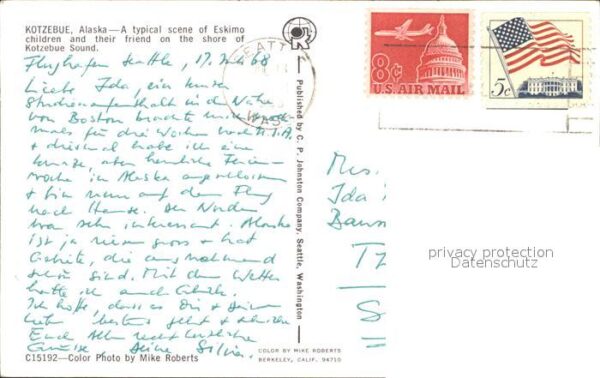 KOTZEBUE, Alaska—A typical scene of Eskimo
children and their friend on the shore of
Kotzebue Sound.
Flughafen Seattle, 17. 68
Liebe Ida, ein kurzer
Studienaufenthalt in der Nähe
von Boston brachte mich noch-
mals für drei Wochen nach U.S.A.
& diesmal habe ich eine
kurze, aber herrliche Ferien-
woche in Alaska angeschlossen
& bin nun auf dem Flug
nach Hause. Der Norden
war sehr interessant. Alaska
ist ja riesengross & hat
Gebiete, die ausnehmend
schön sind. Mit dem Wetter
hatte ich auch Glück.
Ich hoffe, dass es Dir & Deinen
Lieben bestens geht & schicke
Euch Allen recht herzliche
Grüsse Deine Silvia.
C15192—Color Photo by Mike Roberts
Published by C. P. Johnston Company, Seattle, Washington
COLOR BY MIKE ROBERTS
BERKELEY, CALIF. 94710
SEATTLE
WASH
8¢
U.S. AIR MAIL
5c
Mrs.
Ida
privacy protection
Datenschutz